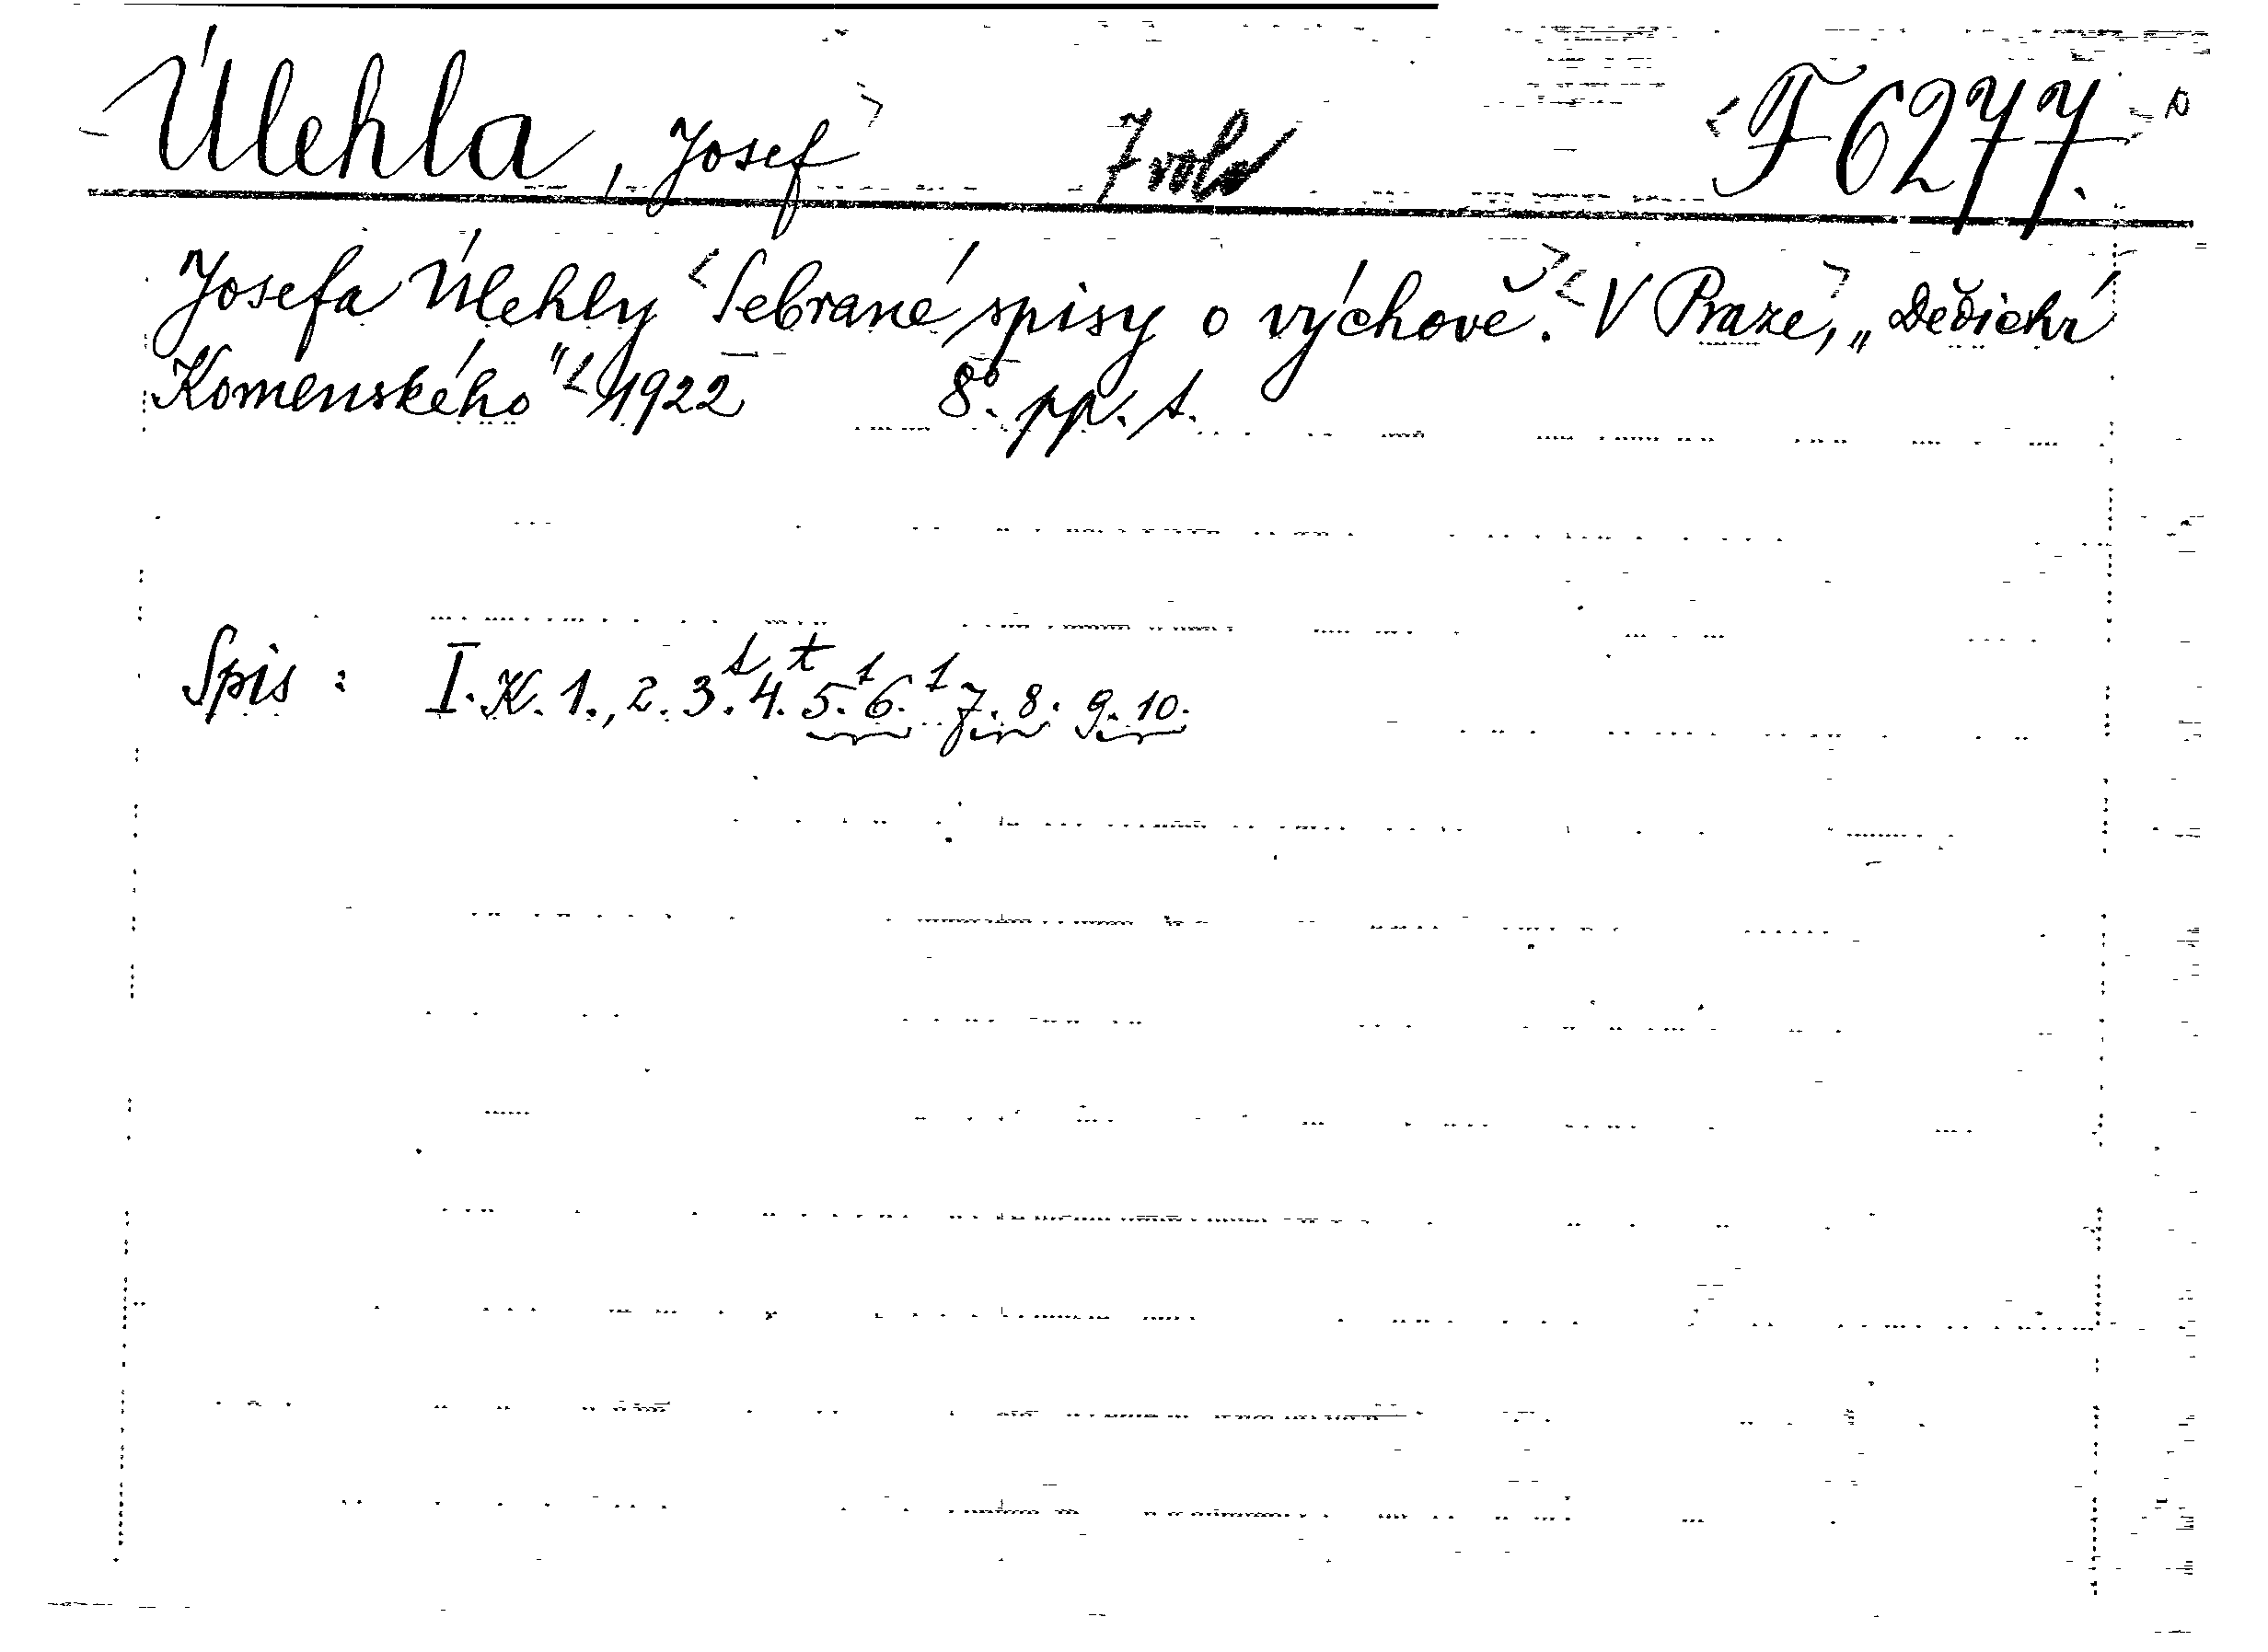 Úlehla, Josef 7 vols F 6277.
Josefa Úlehly Sebrané spisy o výchově. V Praze, „Dědictví
Komenského" 1922 8°. pp. s.
Spis: I. K. 1., 2. 3. 4. 5. 6. 7. 8. 9. 10.